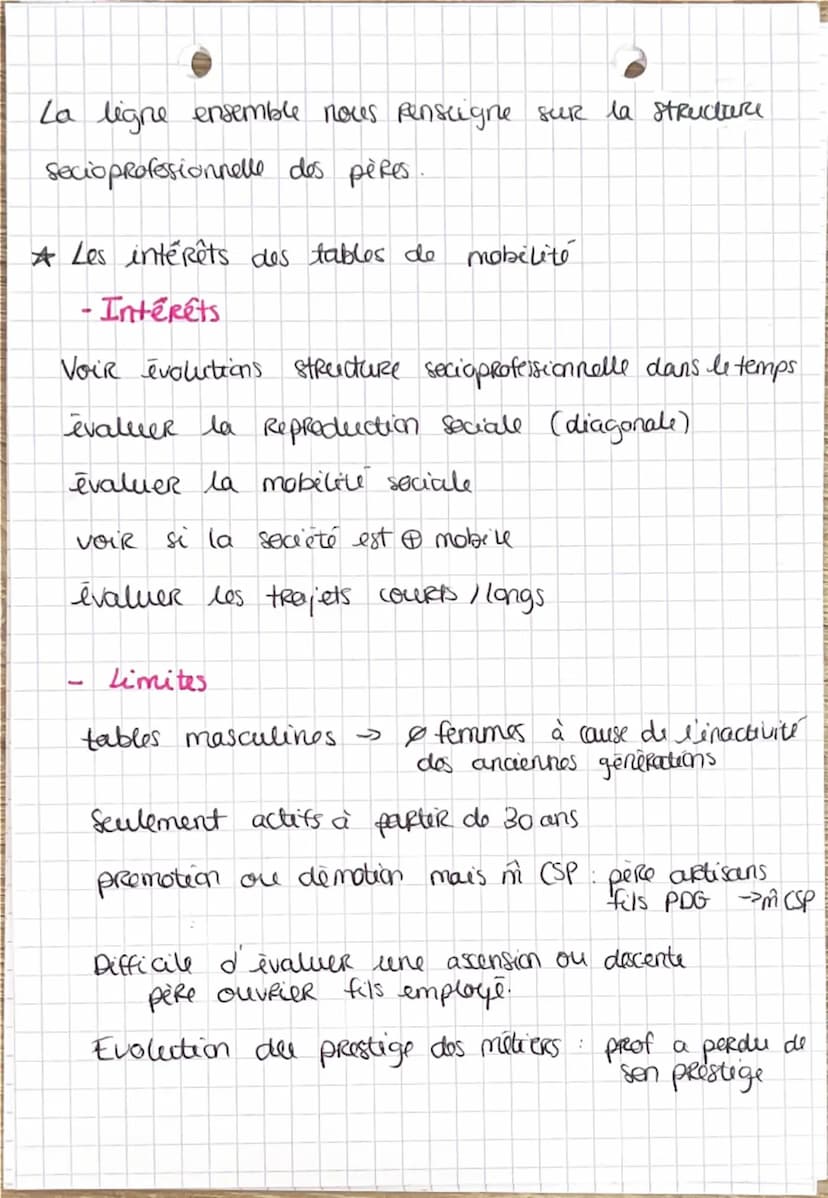 La ligne ensemble nous renseigne sur la structure
socioprofessionnelle des pères.
☆ Les intérêts des tables de mobilité
- Intérêts
Voir évolutions structure socioprofessionnelle dans le temps
évaluer la reproduction sociale (diagonale)
évaluer la mobilité sociale
voir si la société est ⊕ mobile
évaluer les trajets courts / longs
- Limites
tables masculines → ø femmes à cause de l'inactivité
des anciennes générations
Seulement actifs à partir de 30 ans
promotion ou démotion mais m̂ CSP : père artisans
fils PDG → m̂ CSP
Difficile d'évaluer une ascension ou descente
père ouvrier fils employé.
Evolution du prestige des métiers : prof a perdu de
son prestige